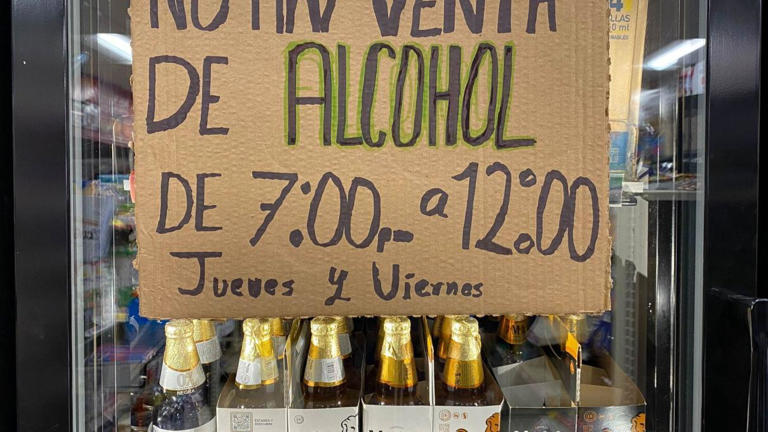 NO HAY VENTA
DE ALCOHOL
DE 7:00pm a 12:00
Jueves y Viernes
NEGRA